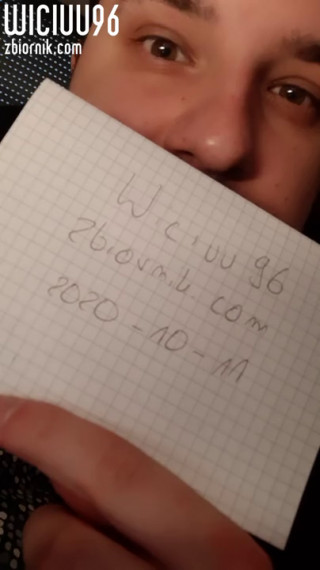 WICIUU96
zbiornik.com
Wiciuu 96
Zbiornik.com
2020-10-11